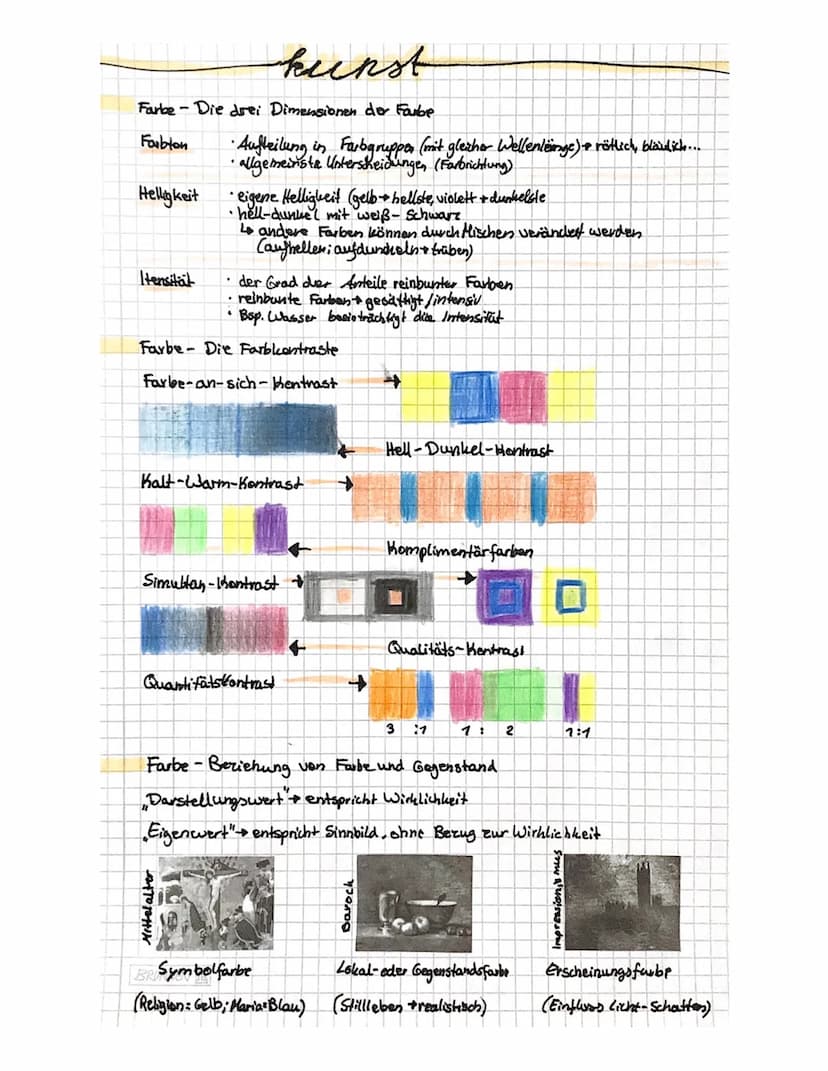 kunst
Farbe - Die drei Dimensionen der Farbe
Farbton
· Aufteilung in Farbgruppen (mit gleicher Wellenlänge) → rötlich, bläulich...
· allgemeinste Unterscheidungen (Farbrichtung)
Helligkeit
· eigene Helligkeit (gelb → hellste, violett → dunkelste
· hell-dunkel mit weiß - Schwarz
↳ andere Farben können durch Mischen verändert werden
(aufhellen; aufdunkeln → trüben)
Itensität
· der Grad der Anteile reinbunter Farben
· reinbunte Farben → gesättigt / intensiv
· Bsp. Wasser beeinträchtigt die Intensität
Farbe - Die Farbkontraste
Farbe-an-sich-Kontrast →
← Hell-Dunkel-Kontrast
Kalt-Warm-Kontrast →
← Komplimentärfarben
Simultan-Kontrast →
← Qualitäts-Kontrast
Quantitätskontrast →
3 :1 1 : 2 1:1
Farbe - Beziehung von Farbe und Gegenstand
„Darstellungswert" → entspricht Wirklichkeit
„Eigenwert" → entspricht Sinnbild, ohne Bezug zur Wirklichkeit
Mittelalter
Barock
Impressionismus
Symbolfarbe
Lokal- oder Gegenstandsfarbe
Erscheinungsfarbe
(Religion = Gelb; Maria = Blau)
(Stillleben → realistisch)
(Einfluss Licht-Schatten)